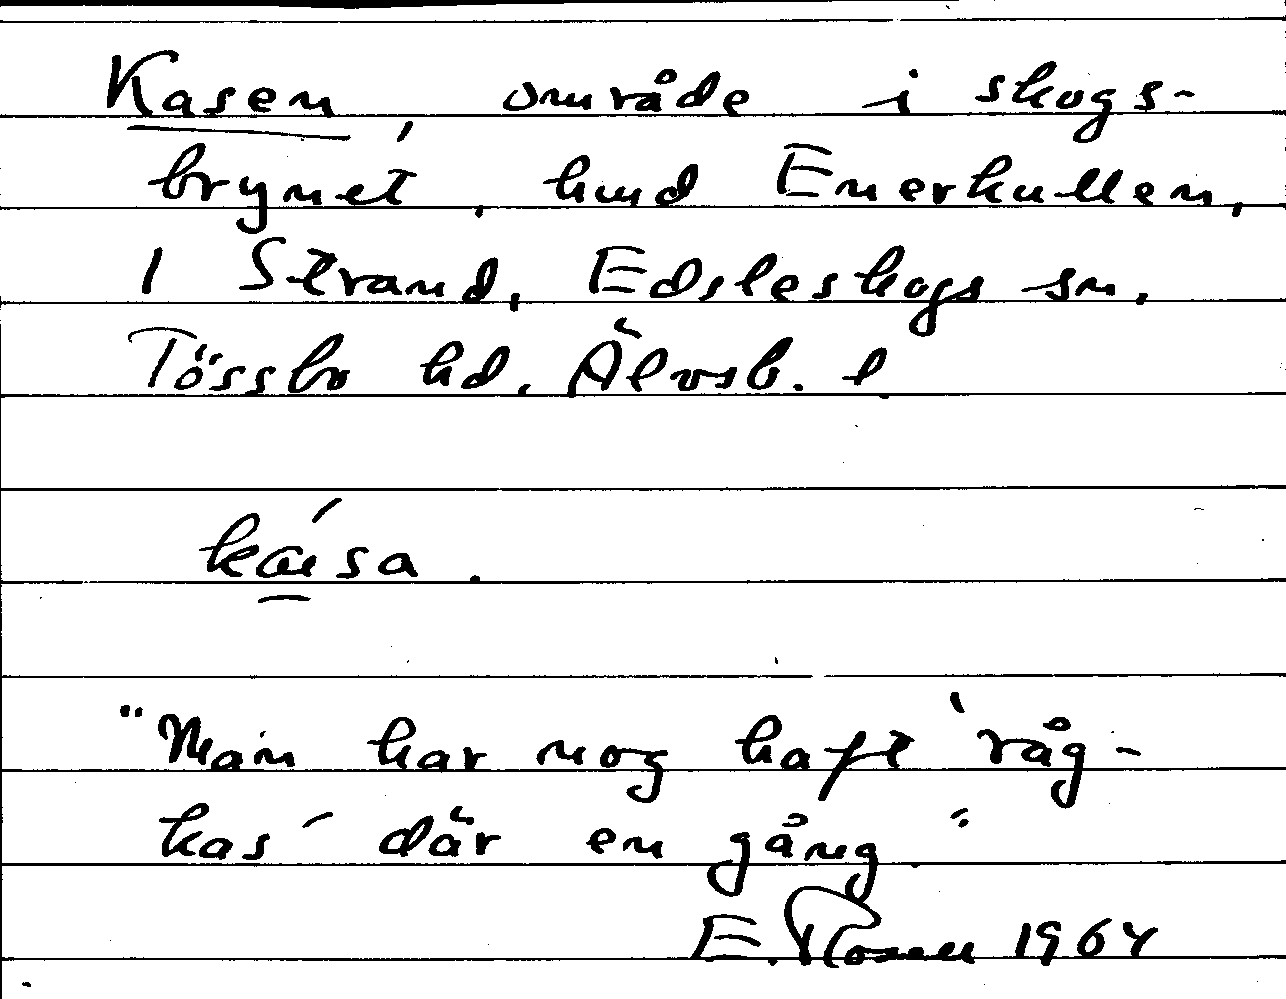 Kasen, område i skogs-
brynet, hmd Enerkullen,
i Strand, Edsleskogs sn,
Tössbo hd, Älvsb. l
ká̱sa.
"Man har nog haft 'råg-
kas' där en gång."
E. Rosell 1964